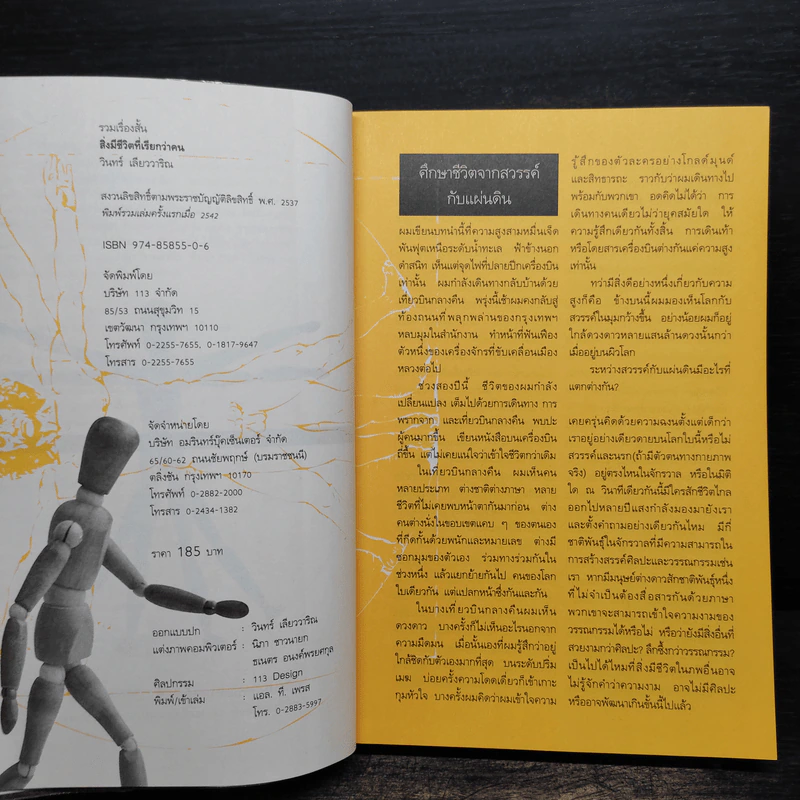 รวมเรื่องสั้น
สิ่งมีชีวิตที่เรียกว่าคน
วินทร์ เลียววาริณ
สงวนลิขสิทธิ์ตามพระราชบัญญัติลิขสิทธิ์ พ.ศ. 2537
พิมพ์รวมเล่มครั้งแรกเมื่อ 2542
ISBN 974-85855-0-6
จัดพิมพ์โดย
บริษัท 113 จำกัด
85/53 ถนนสุขุมวิท 15
เขตวัฒนา กรุงเทพฯ 10110
โทรศัพท์ 0-2255-7655, 0-1817-9647
โทรสาร 0-2255-7655
จัดจำหน่ายโดย
บริษัท อมรินทร์บุ๊คเซ็นเตอร์ จำกัด
65/60-62 ถนนชัยพฤกษ์ (บรมราชชนนี)
ตลิ่งชัน กรุงเทพฯ 10170
โทรศัพท์ 0-2882-2000
โทรสาร 0-2434-1382
ราคา 185 บาท
ออกแบบปก : วินทร์ เลียววาริณ
แต่งภาพคอมพิวเตอร์ : นิภา ชาวนายก
ธเนตร อนงค์พรยศกุล
ศิลปกรรม : 113 Design
พิมพ์/เข้าเล่ม : แอล. ที. เพรส
โทร. 0-2883-5997
ศึกษาชีวิตจากสวรรค์
กับแผ่นดิน
ผมเขียนบทนำนี้ที่ความสูงสามหมื่นเจ็ด
พันฟุตเหนือระดับน้ำทะเล ฟ้าข้างนอก
ดำสนิท เห็นแต่จุดไฟที่ปลายปีกเครื่องบิน
เท่านั้น ผมกำลังเดินทางกลับบ้านด้วย
เที่ยวบินกลางคืน พรุ่งนี้เช้าผมคงกลับสู่
ท้องถนนที่พลุกพล่านของกรุงเทพฯ
หลบมุมในสำนักงาน ทำหน้าที่ฟันเฟือง
ตัวหนึ่งของเครื่องจักรที่ขับเคลื่อนเมือง
หลวงต่อไป
ช่วงสองปีนี้ ชีวิตของผมกำลัง
เปลี่ยนแปลง เต็มไปด้วยการเดินทาง การ
พรากจาก และเที่ยวบินกลางคืน พบปะ
ผู้คนมากขึ้น เขียนหนังสือบนเครื่องบิน
ถี่ขึ้น แต่ไม่เคยแน่ใจว่าเข้าใจชีวิตกว่าเดิม
ในเที่ยวบินกลางคืน ผมเห็นคน
หลายประเภท ต่างชาติต่างภาษา หลาย
ชีวิตที่ไม่เคยพบหน้าตากันมาก่อน ต่าง
คนต่างนั่งในขอบเขตแคบ ๆ ของตนเอง
ที่กีดกั้นด้วยพนักและหมายเลข ต่างมี
ซอกมุมของตัวเอง ร่วมทางร่วมกันใน
ช่วงหนึ่ง แล้วแยกย้ายกันไป คนของโลก
ใบเดียวกัน แต่แปลกหน้าซึ่งกันและกัน
ในบางเที่ยวบินกลางคืนผมเห็น
ดวงดาว บางครั้งก็ไม่เห็นอะไรนอกจาก
ความมืดมน เมื่อนั้นเองที่ผมรู้สึกว่าอยู่
ใกล้ชิดกับตัวเองมากที่สุด บนระดับปริ่ม
เมฆ บ่อยครั้งความโดดเดี่ยวก็เข้าเกาะ
กุมหัวใจ บางครั้งผมคิดว่าผมเข้าใจความ
รู้สึกของตัวละครอย่างโกลด์มุนด์
และสิทธารถะ ราวกับว่าผมเดินทางไป
พร้อมกับพวกเขา อดคิดไม่ได้ว่า การ
เดินทางคนเดียวไม่ว่ายุคสมัยใด ให้
ความรู้สึกเดียวกันทั้งสิ้น การเดินเท้า
หรือโดยสารเครื่องบินต่างกันแค่ความสูง
เท่านั้น
ทว่ามีสิ่งดีอย่างหนึ่งเกี่ยวกับความ
สูงก็คือ ข้างบนนี้ผมมองเห็นโลกกับ
สวรรค์ในมุมกว้างขึ้น อย่างน้อยผมก็อยู่
ใกล้ดวงดาวหลายแสนล้านดวงนั้นกว่า
เมื่ออยู่บนผิวโลก
ระหว่างสวรรค์กับแผ่นดินมีอะไรที่
แตกต่างกัน?
เคยครุ่นคิดด้วยความฉงนตั้งแต่เด็กว่า
เราอยู่อย่างเดียวดายบนโลกใบนี้หรือไม่
สวรรค์และนรก(ถ้ามีตัวตนทางกายภาพ
จริง) อยู่ตรงไหนในจักรวาล หรือในมิติ
ใด ณ วินาทีเดียวกันนี้มีใครสักชีวิตไกล
ออกไปหลายปีแสงกำลังมองมายังเรา
และตั้งคำถามอย่างเดียวกันไหม มีกี่
ชาติพันธุ์ในจักรวาลที่มีความสามารถใน
การสร้างสรรค์ศิลปะและวรรณกรรมเช่น
เรา หากมีมนุษย์ต่างดาวสักชาติพันธุ์หนึ่ง
ที่ไม่จำเป็นต้องสื่อสารกันด้วยภาษา
พวกเขาจะสามารถเข้าใจความงามของ
วรรณกรรมได้หรือไม่ หรือว่ายังมีสิ่งอื่นที่
สวยงามกว่าศิลปะ? ลึกซึ้งกว่าวรรณกรรม?
เป็นไปได้ไหมที่สิ่งมีชีวิตในภพอื่นอาจ
ไม่รู้จักคำว่าความงาม อาจไม่มีศิลปะ
หรืออาจพัฒนาเกินขั้นนี้ไปแล้ว